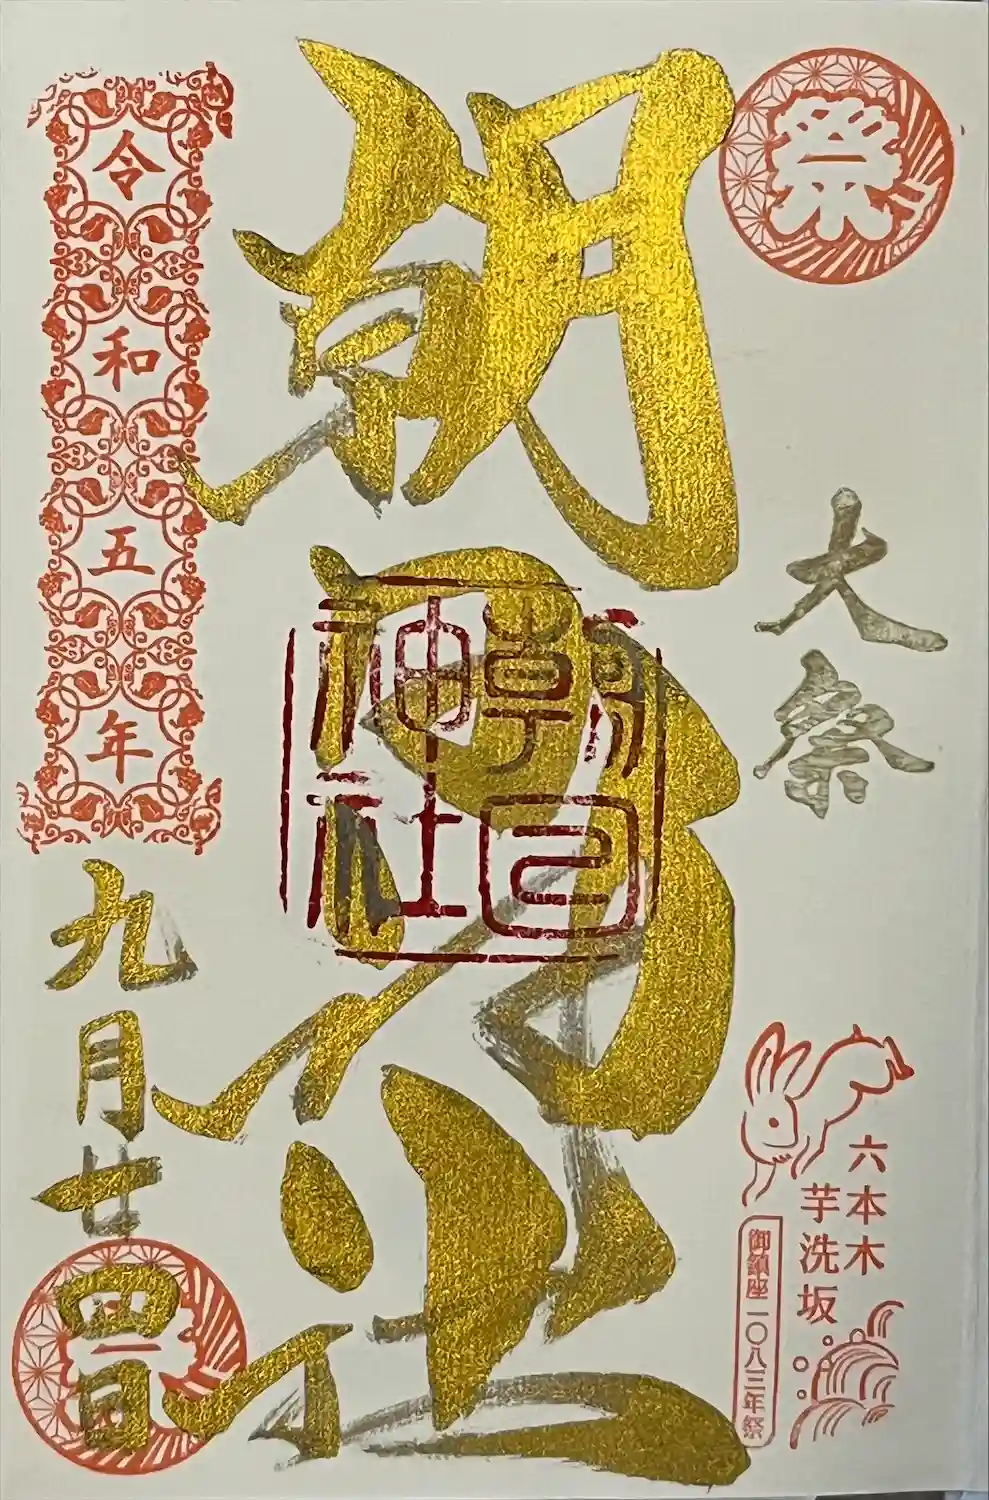 祭
大祭
六本木
芋洗坂
御鎮座一〇八三年祭
朝日神社
朝日神社
令和五年
九月廿四日
祭